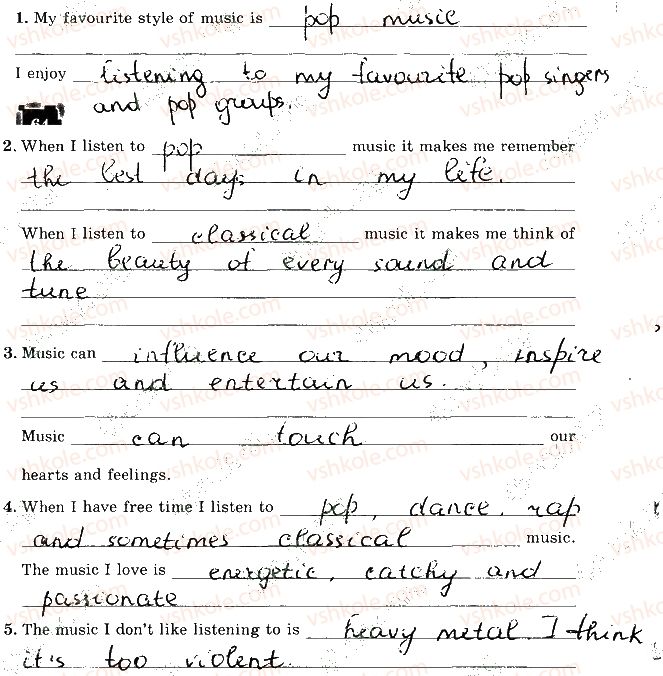 1. My favourite style of music is pop music
I enjoy listening to my favourite pop singers
and pop groups.
2. When I listen to pop music it makes me remember
the best days in my life.
When I listen to classical music it makes me think of
the beauty of every sound and
tune
3. Music can influence our mood, inspire
us and entertain us.
Music can touch our
hearts and feelings.
4. When I have free time I listen to pop, dance, rap
and sometimes classical music.
The music I love is energetic, catchy and
passionate
5. The music I don't like listening to is heavy metal. I think
it's too violent.
vshkole.com